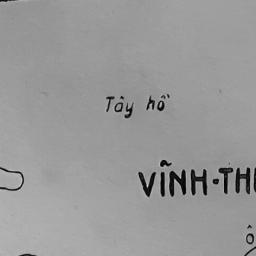 Tây hồ
VĨNH-TH